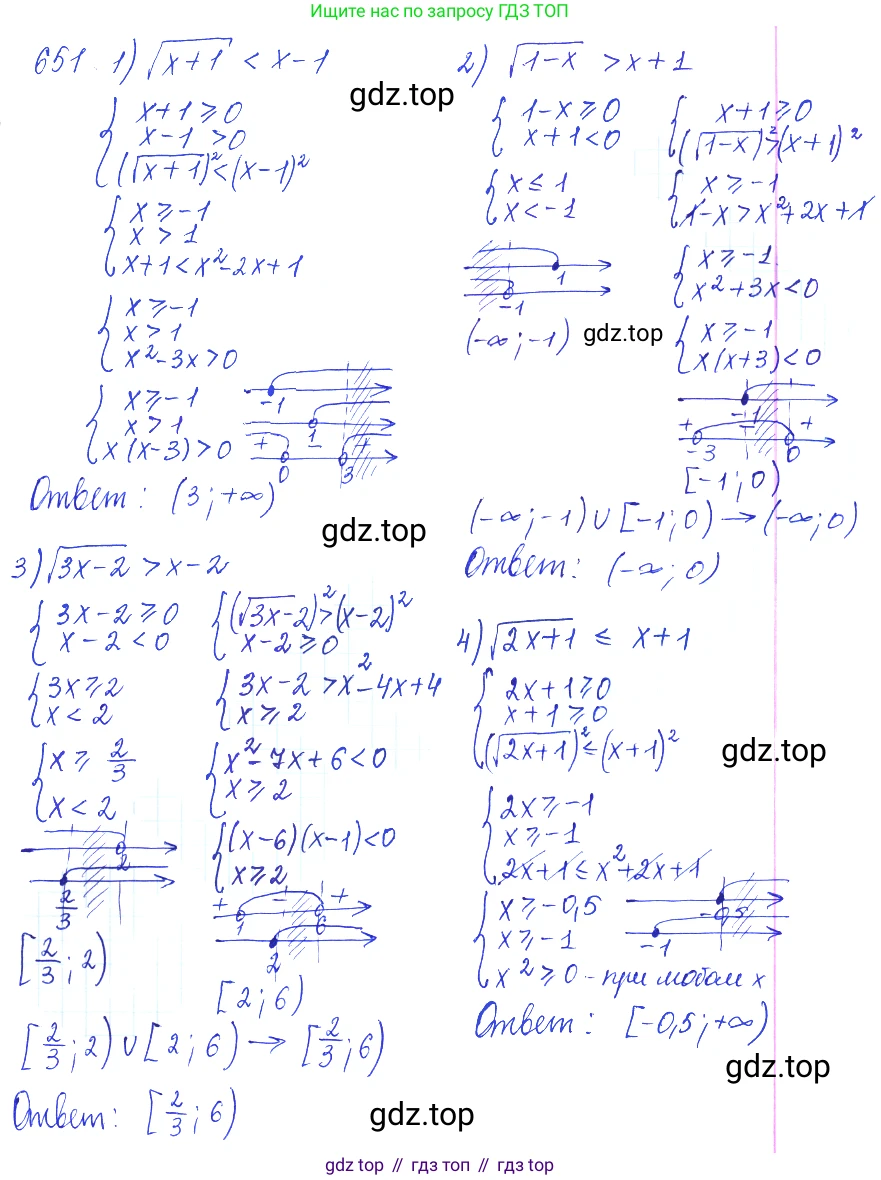 Ищите нас по запросу ГДЗ ТОП
651. 1) √(x+1) < x-1
gdz.top
{ x+1⩾0
x-1 >0
(√(x+1))² < (x-1)²
{ x⩾-1
x>1
x+1<x²-2x+1
{ x⩾-1
x>1
x²-3x>0
{ x⩾-1
x>1
x(x-3)>0
-1
1
+ - +
0 3
Ответ: (3;+∞)
2) √(1-x) >x+1
{ 1-x⩾0
x+1<0
{ x≤1
x<-1
1
-1
(-∞;-1)
gdz.top
{ x+1⩾0
(√(1-x))²>(x+1)²
{ x⩾-1
1-x>x²+2x+1
{ x⩾-1
x²+3x<0
{ x⩾-1
x(x+3)<0
-1
+ - +
-3 0
[-1;0)
(-∞;-1)∪[-1;0)→(-∞;0)
Ответ: (-∞;0)
gdz.top
3) √(3x-2) >x-2
{ 3x-2⩾0
x-2<0
{ 3x⩾2
x<2
{ x⩾ 2/3
x<2
2
2/3
[2/3;2)
{ (√(3x-2))²>(x-2)²
x-2⩾0
{ 3x-2>x²-4x+4
x⩾2
{ x²-7x+6<0
x⩾2
{ (x-6)(x-1)<0
x⩾2
+ - +
1 6
2
[2;6)
[2/3;2)∪[2;6)→[2/3;6)
Ответ: [2/3;6)
4) √(2x+1) ≤ x+1
{ 2x+1⩾0
x+1⩾0
(√(2x+1))²≤(x+1)²
gdz.top
{ 2x⩾-1
x⩾-1
2x+1≤x²+2x+1
{ x⩾-0,5
x⩾-1
x²⩾0 - при любом x
-0,5
-1
Ответ: [-0,5;+∞)
gdz.top
gdz.top
gdz top // гдз топ // gdz top